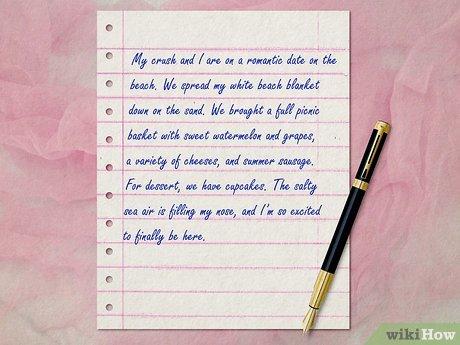 My crush and I are on a romantic date on the
beach. We spread my white beach blanket
down on the sand. We brought a full picnic
basket with sweet watermelon and grapes,
a variety of cheeses, and summer sausage.
For dessert, we have cupcakes. The salty
sea air is filling my nose, and I'm so excited
to finally be here.
wikiHow